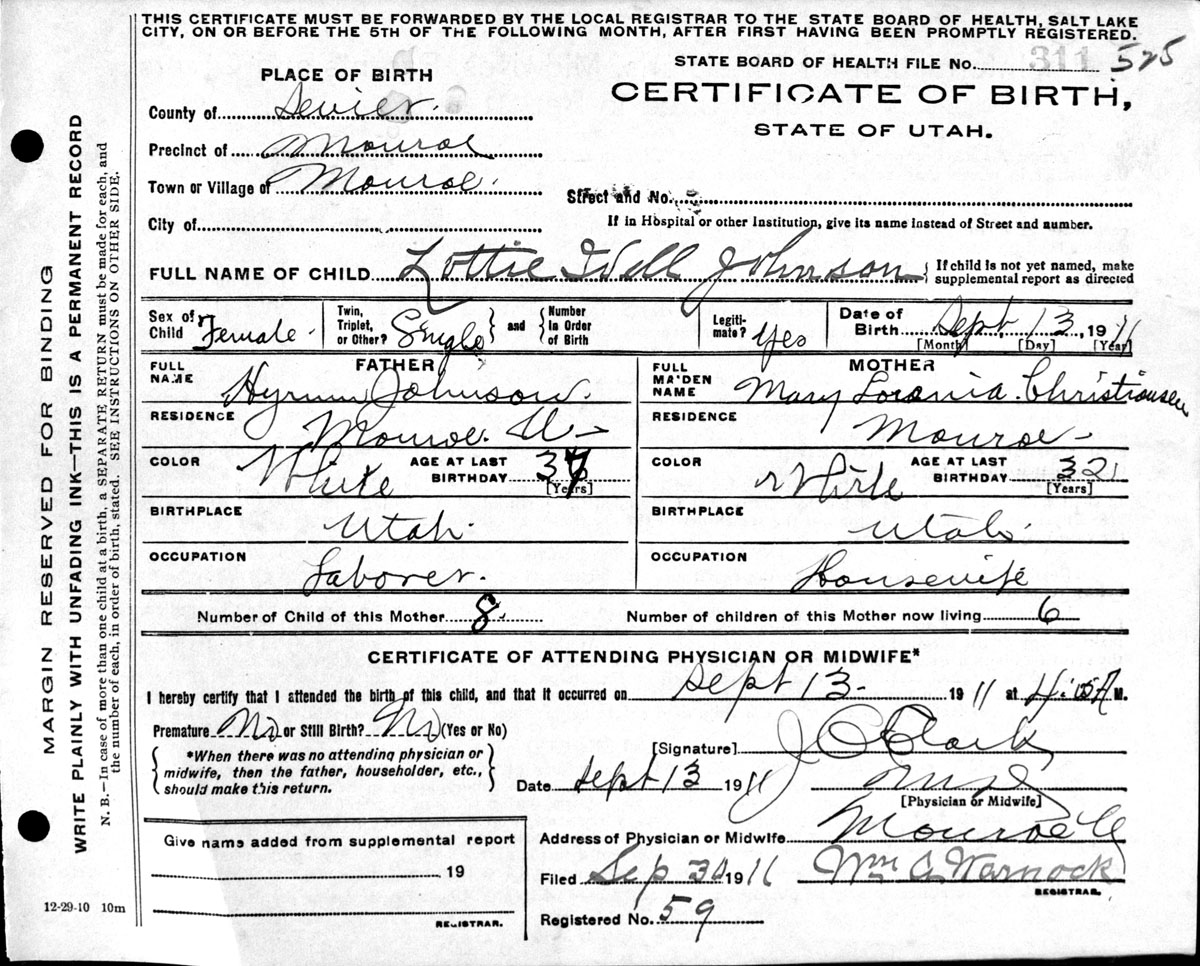 THIS CERTIFICATE MUST BE FORWARDED BY THE LOCAL REGISTRAR TO THE STATE BOARD OF HEALTH, SALT LAKE
CITY, ON OR BEFORE THE 5TH OF THE FOLLOWING MONTH, AFTER FIRST HAVING BEEN PROMPTLY REGISTERED.
STATE BOARD OF HEALTH FILE No. 311 525
PLACE OF BIRTH
CERTIFICATE OF BIRTH,
STATE OF UTAH.
County of Sevier.
Precinct of Monroe
Town or Village of Monroe.
Street and No.
City of
If in Hospital or other Institution, give its name instead of Street and number.
FULL NAME OF CHILD Lottie Johnson { If child is not yet named, make supplemental report as directed
Sex of Child Female. Twin, Triplet, or Other? Single } and { Number In Order of Birth Legitimate? Yes Date of Birth Sept. 13, 1911
[Month] [Day] [Year]
FATHER
FULL NAME Hyrum Johnson.
MOTHER
FULL MAIDEN NAME Mary Lorania. Christiansen
RESIDENCE Monroe. U-
RESIDENCE Monroe-
COLOR White AGE AT LAST BIRTHDAY 37 [Years]
COLOR White AGE AT LAST BIRTHDAY 32 [Years]
BIRTHPLACE Utah.
BIRTHPLACE Utah.
OCCUPATION Laborer.
OCCUPATION Housewife
Number of Child of this Mother 8 Number of children of this Mother now living 6
CERTIFICATE OF ATTENDING PHYSICIAN OR MIDWIFE*
I hereby certify that I attended the birth of this child, and that it occurred on Sept 13- 1911 at A.M.
Premature No or Still Birth? No (Yes or No)
{ *When there was no attending physician or midwife, then the father, householder, etc., should make this return. }
[Signature] J C Clark
Date Sept 13 1911
[Physician or Midwife]
Address of Physician or Midwife Monroe U
Filed Sep 30 1911 Wm A Warnock
REGISTRAR.
Registered No. 59
Give name added from supplemental report
19
REGISTRAR.
12-29-10 10m
MARGIN RESERVED FOR BINDING
WRITE PLAINLY WITH UNFADING INK—THIS IS A PERMANENT RECORD
N. B.—In case of more than one child at a birth, a SEPARATE RETURN must be made for each, and
the number of each, in order of birth, stated. SEE INSTRUCTIONS ON OTHER SIDE.